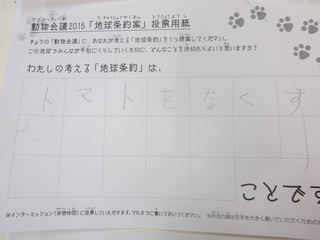 動物会議2015「地球条約案」投票用紙
きょうの「動物会議」に、あなたが考える「地球条約」を1つ提案してください。
この地球でみんなが平和にくらしていくために、どんなことを決めたらよいと思いますか?
わたしの考える「地球条約」は、
トマトをなくす
こと
※インターミッション(休憩時間)に投票していただきます。それまでに書いておいてください。